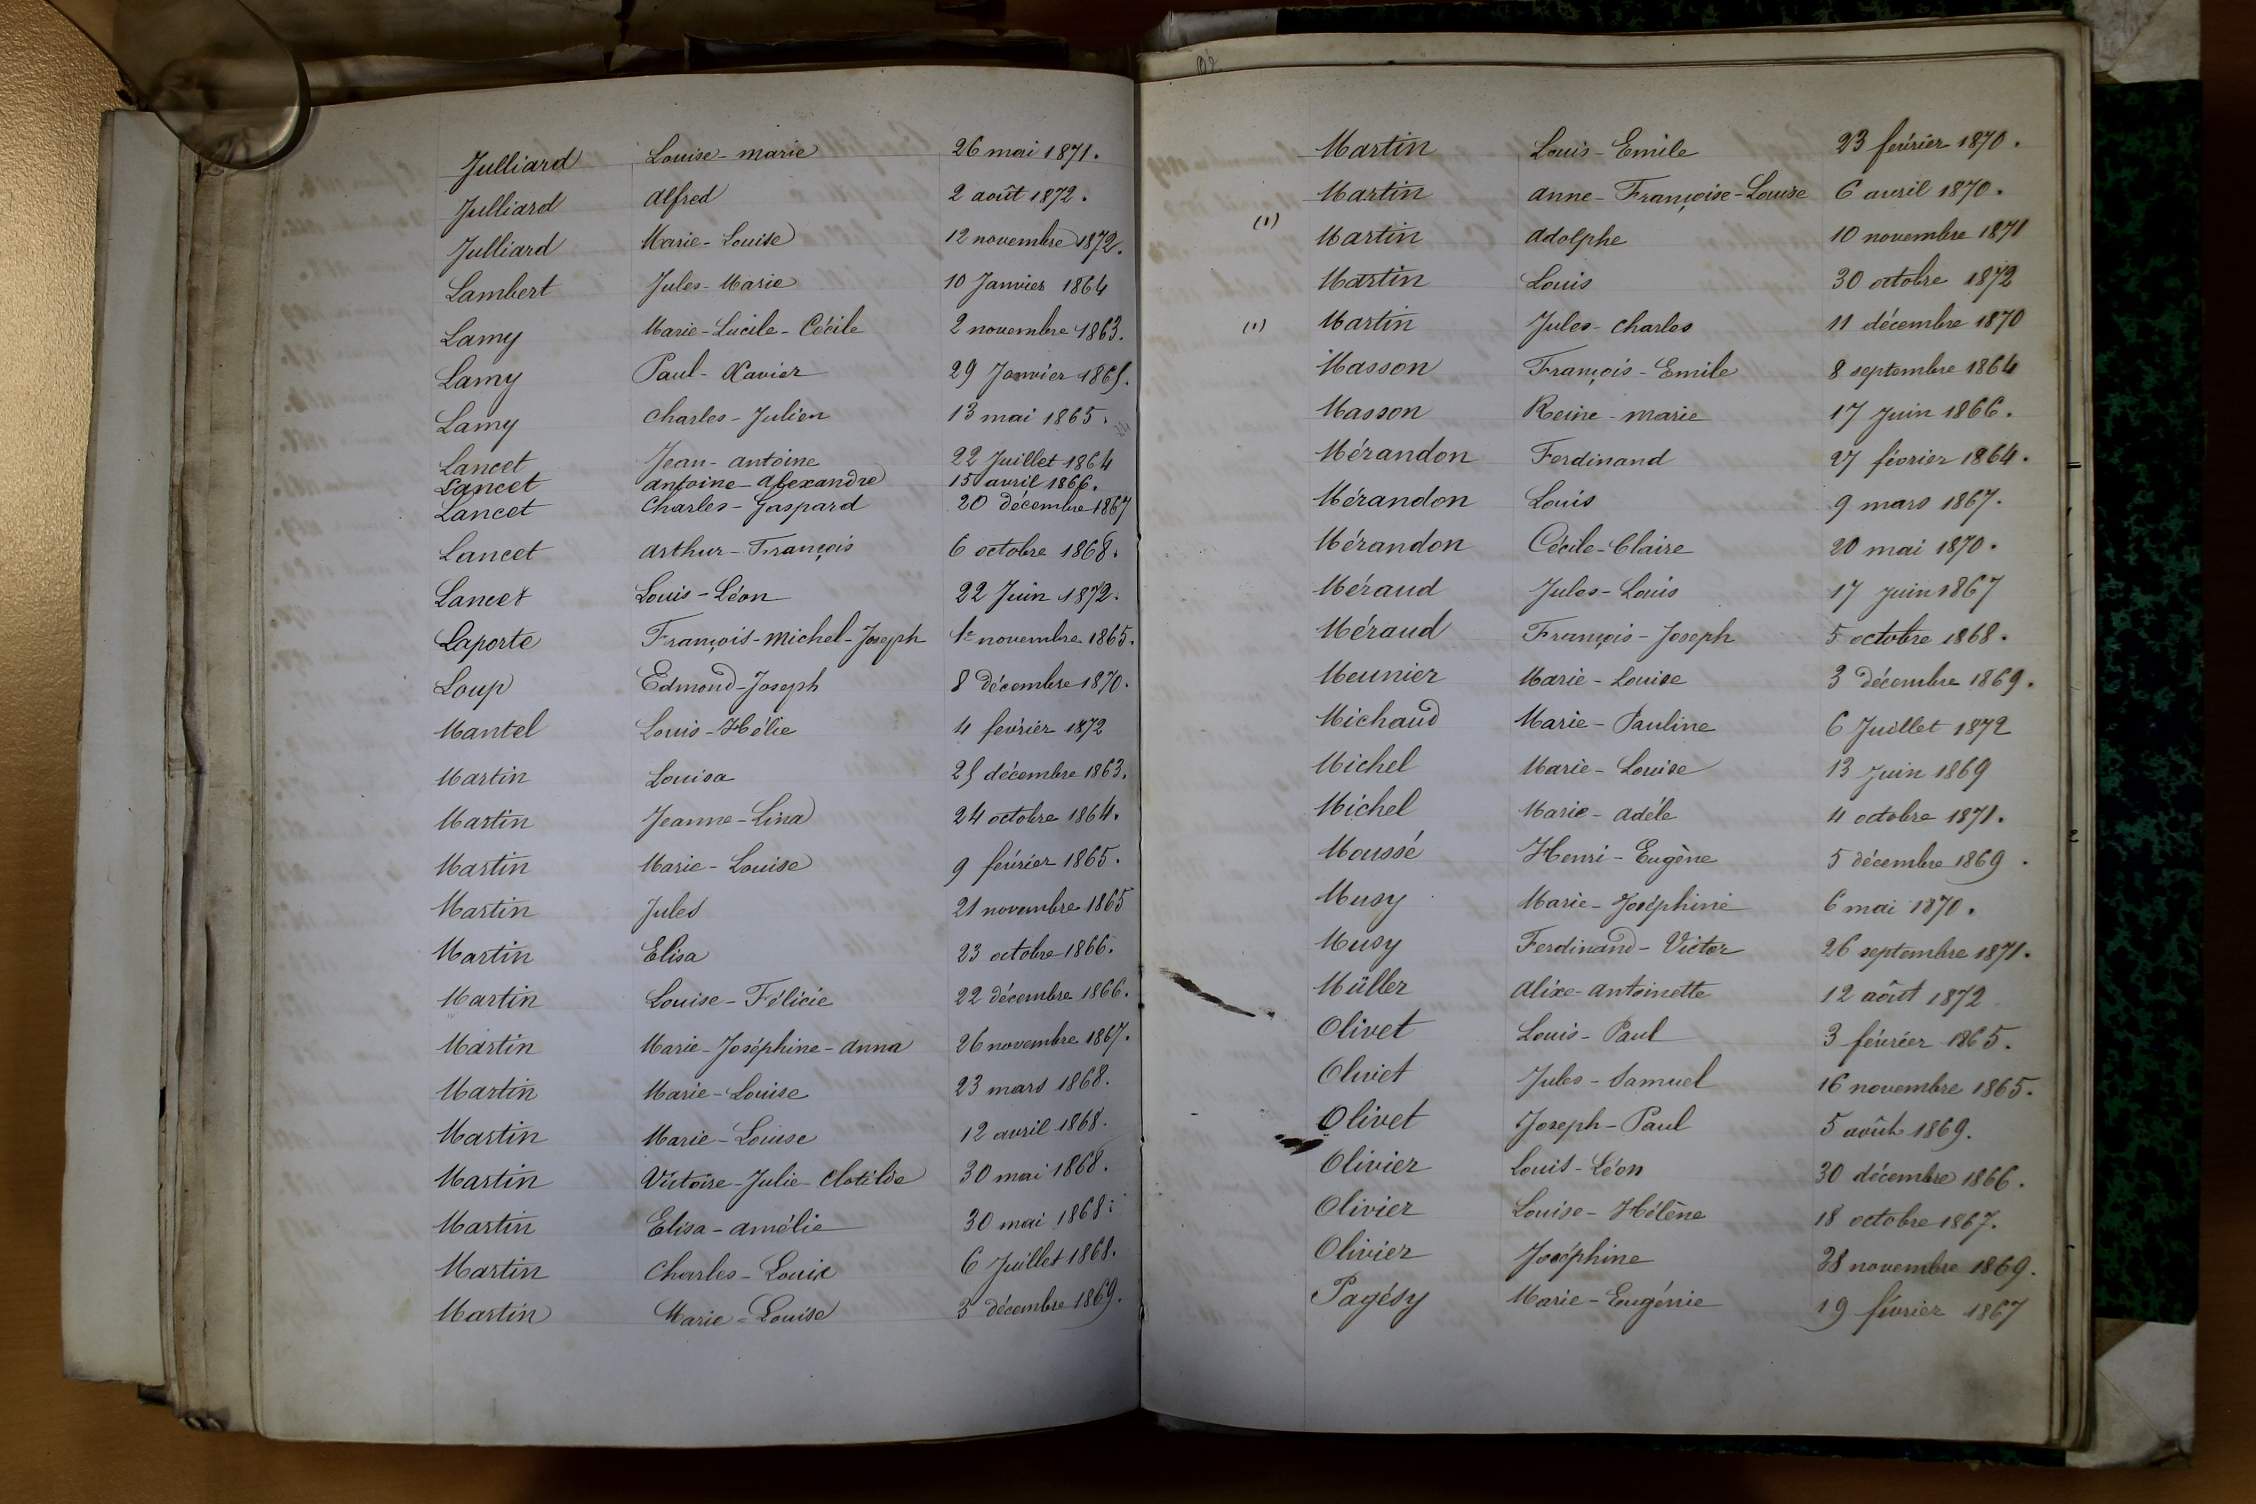 Julliard Louise-marie 26 mai 1871.
Julliard alfred 2 août 1872.
Julliard Marie-Louise 12 novembre 1872.
Lambert Jules-Marie 10 Janvier 1864
Lamy Marie-Lucile-Cécile 2 novembre 1863.
Lamy Paul-Xavier 29 Janvier 1865.
Lamy charles-Julien 13 mai 1865.
Lancet Jean-antoine 22 Juillet 1864
Lancet antoine-alexandre 15 avril 1866.
Lancet Charles-Gaspard 20 décembre 1867
Lancet arthur-François 6 octobre 1868.
Lancet Louis-Léon 22 Juin 1872.
Laporte François-michel-Joseph 1er novembre 1865.
Loup Edmond-Joseph 8 décembre 1870.
Mantel Louis-Hélie 4 février 1872
Martin Louisa 25 décembre 1863.
Martin Jeanne-Lina 24 octobre 1864.
Martin Marie-Louise 9 février 1865.
Martin Jules 21 novembre 1865
Martin Elisa 23 octobre 1866.
Martin Louise-Félicie 22 décembre 1866.
Martin Marie-Joséphine-anna 26 novembre 1867.
Martin Marie-Louise 23 mars 1868.
Martin Marie-Louise 12 avril 1868.
Martin Victoire-Julie-Clotilde 30 mai 1868.
Martin Elisa-amélie 30 mai 1868.
Martin Charles-Louis 6 Juillet 1868.
Martin Marie-Louise 3 décembre 1869.
Martin Louis-Emile 23 février 1870.
Martin anne-Françoise-Louise 6 avril 1870.
(1) Martin adolphe 10 novembre 1871
Martin Louis 30 octobre 1872
(1) Martin Jules-charles 11 décembre 1870
Masson François-Emile 8 septembre 1864
Masson Reine-marie 17 Juin 1866.
Mérandon Ferdinand 27 février 1864.
Mérandon Louis 9 mars 1867.
Mérandon Cécile-Claire 20 mai 1870.
Méraud Jules-Louis 17 juin 1867
Méraud François-Joseph 5 octobre 1868.
Meunier Marie-Louise 3 décembre 1869.
Michaud Marie-Pauline 6 Juillet 1872
Michel Marie-Louise 13 Juin 1869
Michel Marie-adéle 4 octobre 1871.
Moussé Henri-Eugène 5 décembre 1869.
Musy Marie-Joséphine 6 mai 1870.
Musy Ferdinand-Victor 26 septembre 1871.
Müller alixe-antoinette 12 août 1872
Olivet Louis-Paul 3 février 1865.
Olivet Jules-Samuel 16 novembre 1865.
Olivet Joseph-Paul 5 août 1869.
Olivier Louis-Léon 30 décembre 1866.
Olivier Louise-Hélène 18 octobre 1867.
Olivier Joséphine 28 novembre 1869.
Pagésy Marie-Eugénie 19 février 1867